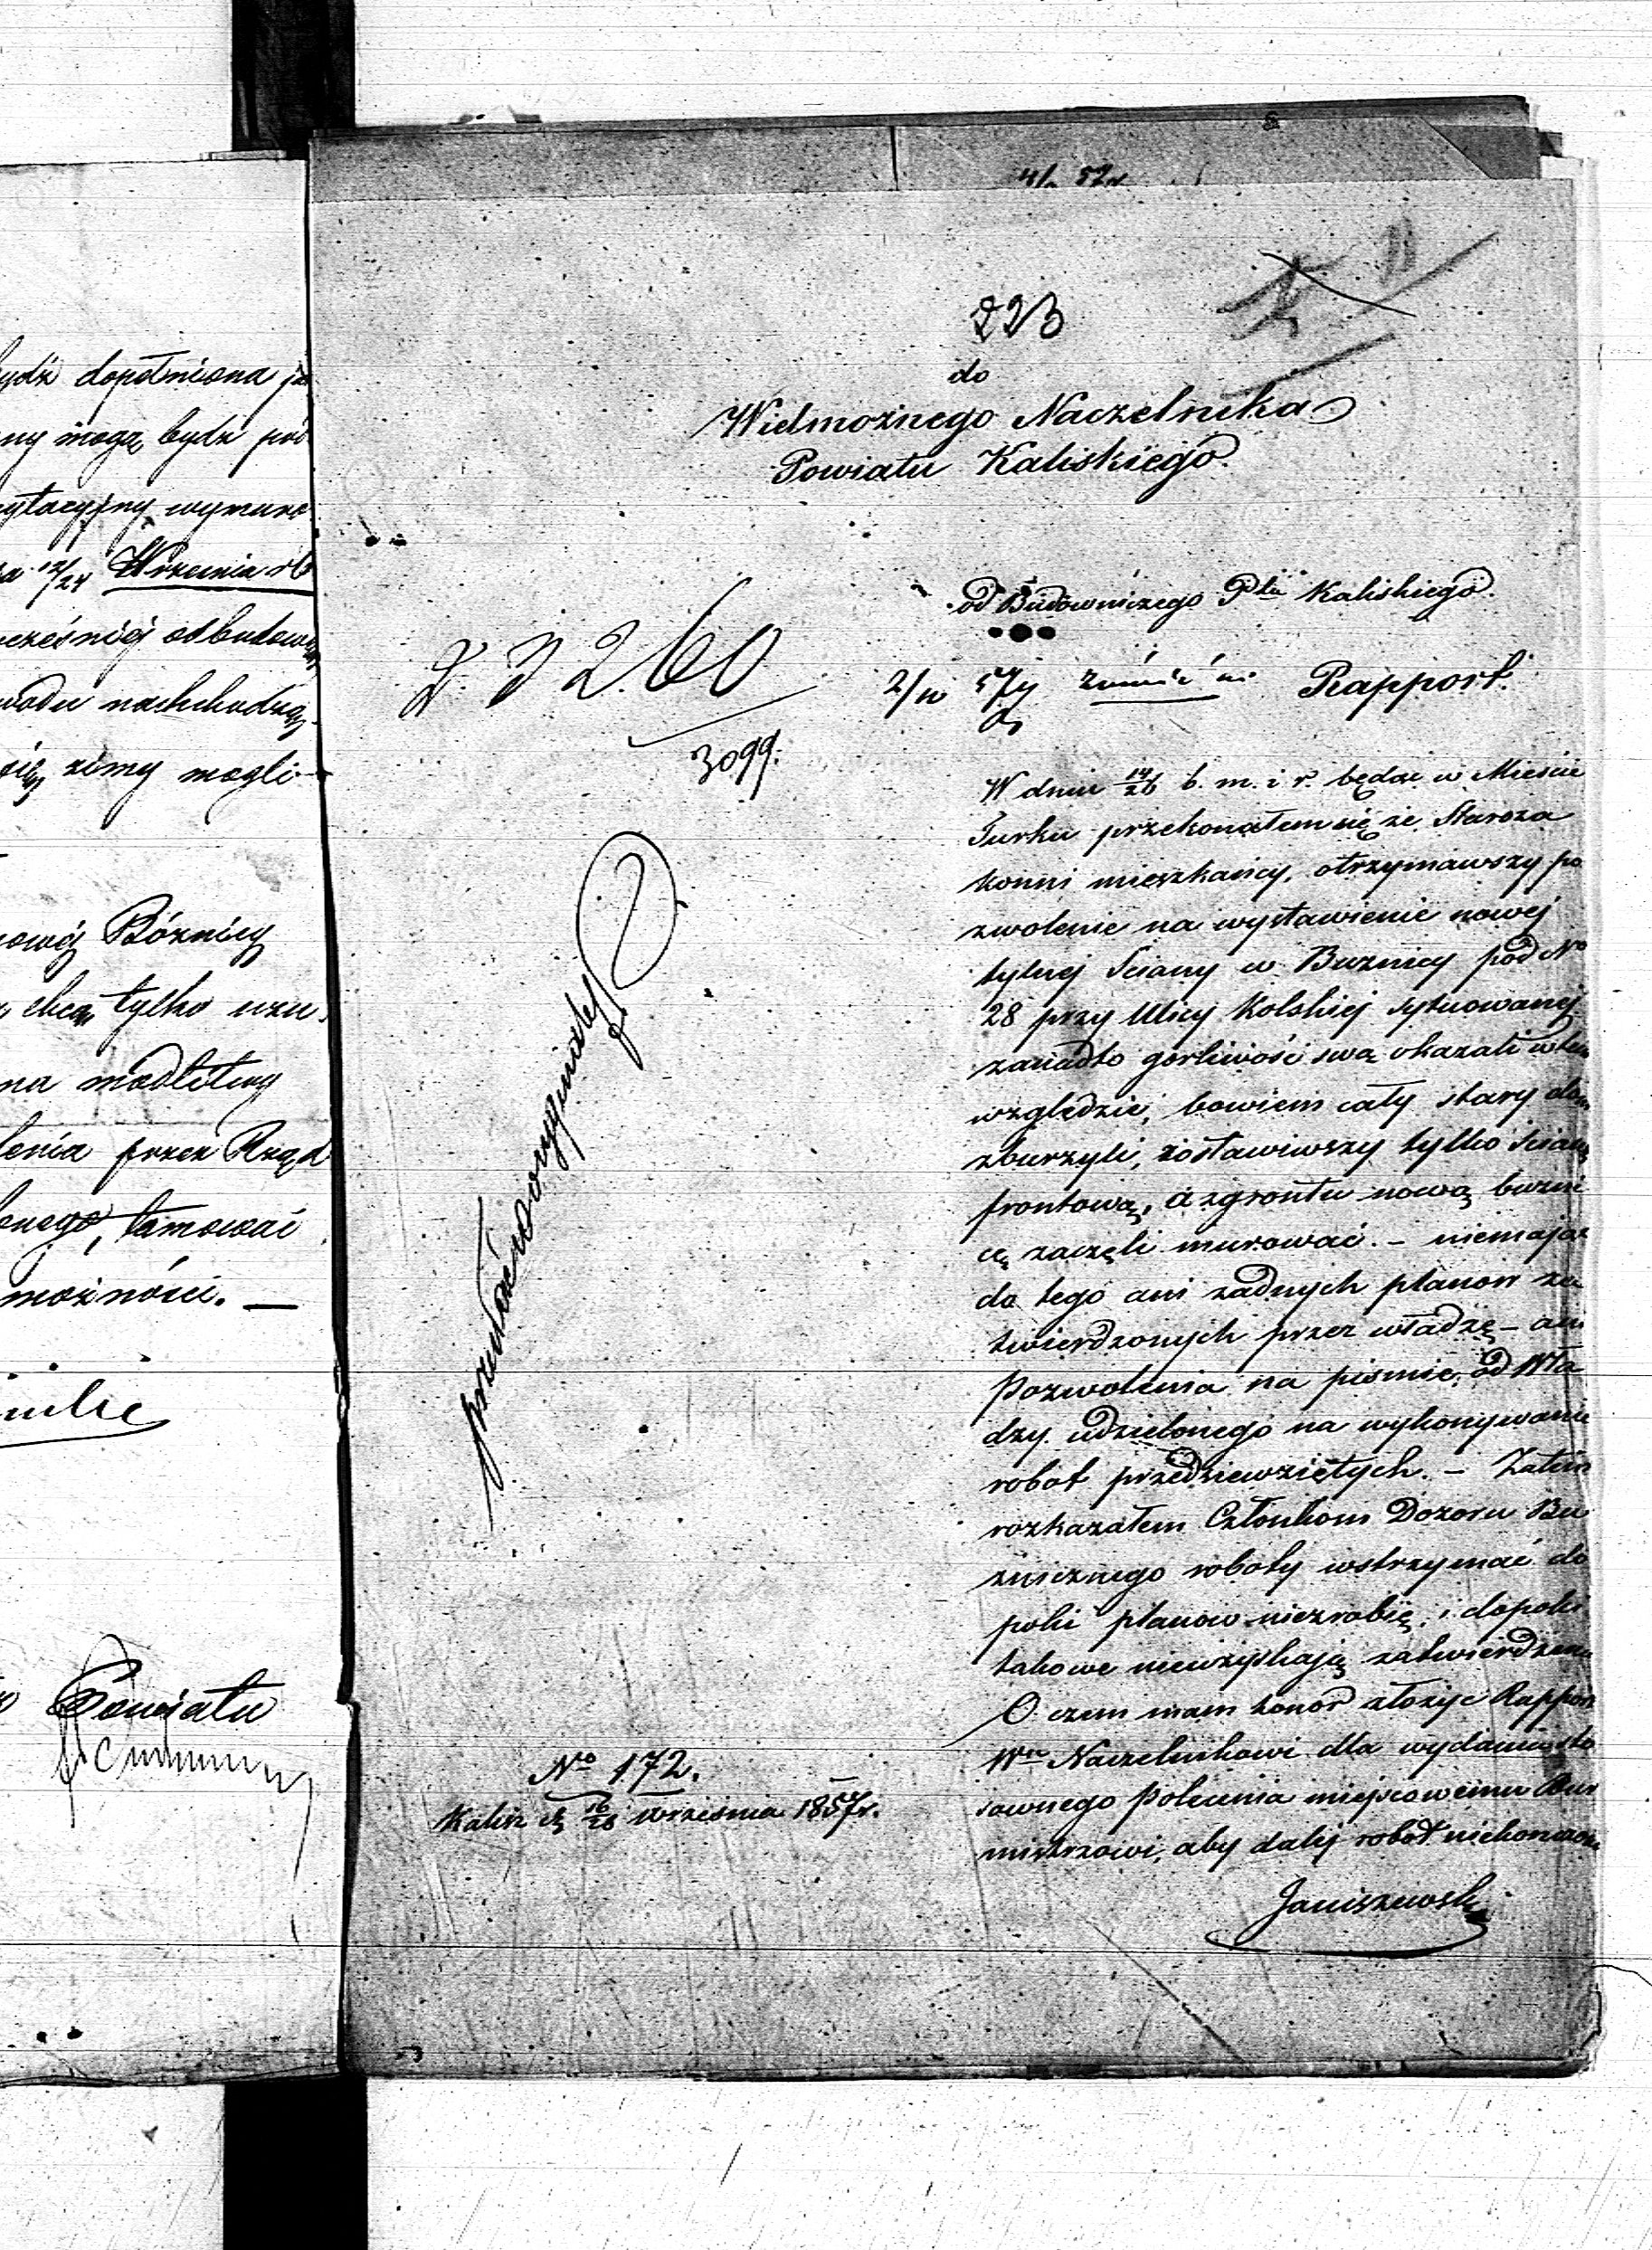 dopełniona
ny mogą bydź
wymuro
12/24 Września rb
odbudow
zimy mogli
Bóżnicy
chcą tylko
na modlitwy
lenia przez Rząd
tamować
możności. —
Powiatu
223
do
Wielmożnego Naczelnika
Powiatu Kaliskiego.
od Budowniczego Ptu Kaliskiego.
260
3099.
Rapport.
W dniu 14/26 b. m. i r. będąc w Mieście
Turku przekonałem się że Staroza
konni mieszkańcy, otrzymawszy po
zwolenie na wystawienie nowej
tylnej Sciany w Buznicy pod No
28 przy Ulicy Kolskiej sytuowanej
zanadto gorliwość swą okazali w tem
względzie, bowiem cały stary dom
zburzyli, zostawiwszy tylko Scianę
frontową, a zgrontu nową buzni
cę zaczęli murować. – niemając
do tego ani żadnych planow za
twierdzonych przez władzę – ani
Pozwolenia na pismie, od Wła
dzy udzielonego na wykonywanie
robot przedsiewziętych. – Zatem
rozkazałem Członkom Dozoru Bu
znicznego roboty wstrzymać do
poki planow niezrobię, i dopoki
takowe nieuzyskają zatwierdzenia
O czem mam honor złożyc Rapport
Wmu Naczelnikowi dla wydania sto
sownego Polecenia miejscowemu Bur
mistrzowi, aby dalej robot niekonczono
Janiszewski
No 172.
Kalisz d 16/28 Września 1857r.